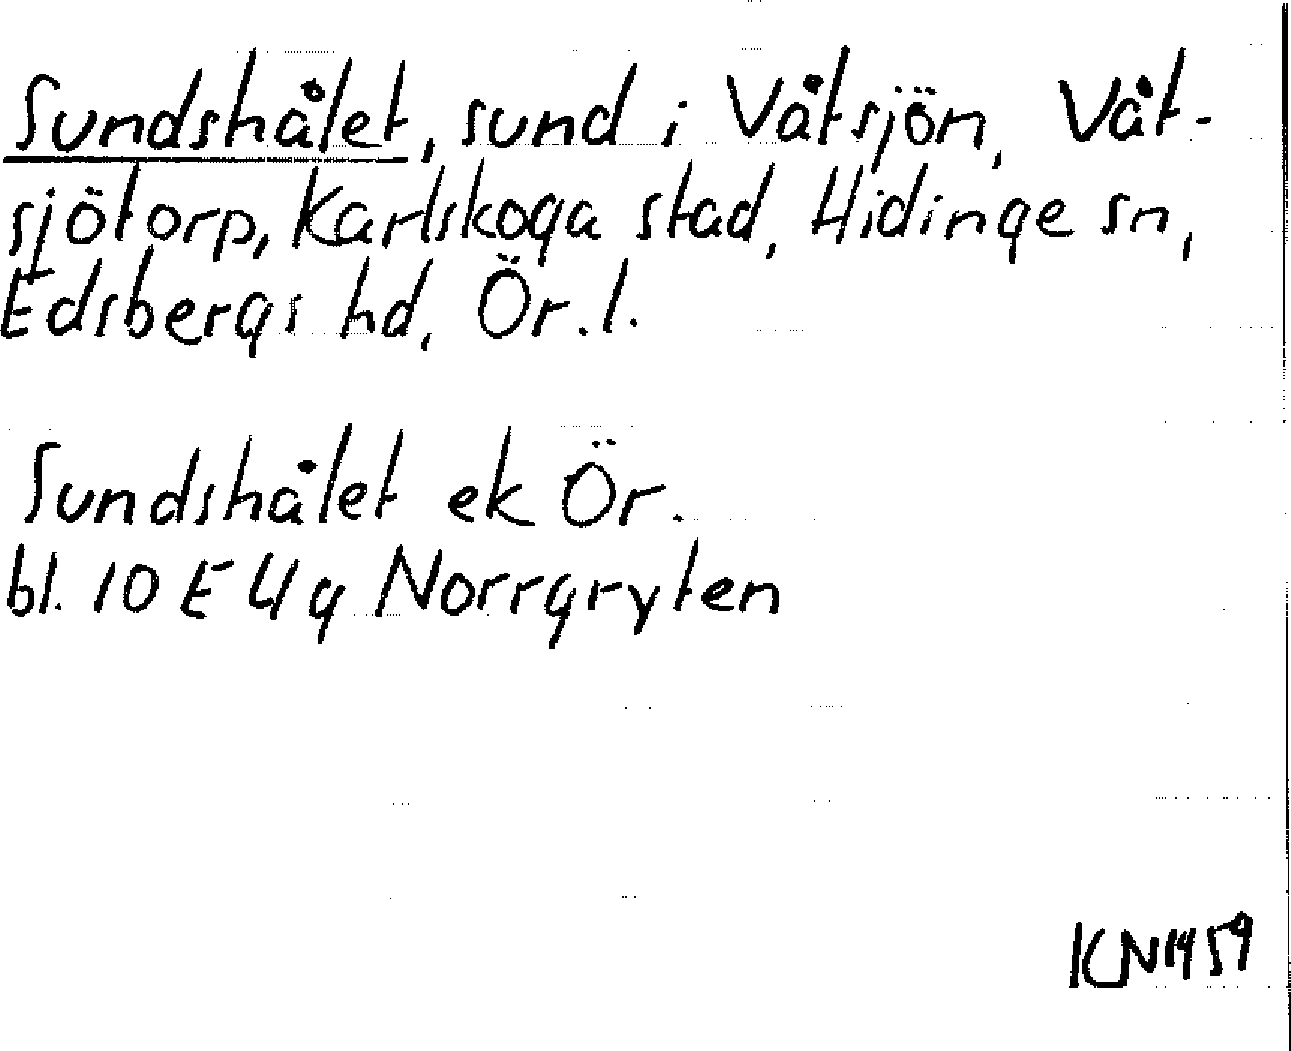 Sundshålet, sund i Våtsjön, Våt-
sjötorp, Karlskoga stad, Hidinge sn,
Edsbergs hd, Ör. l.
Sundshålet ek Ör.
bl. 10 E 4g Norrgryten